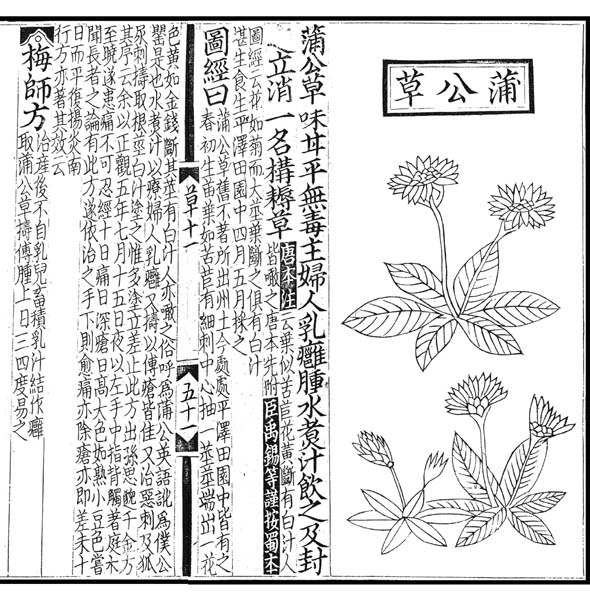 蒲公草
蒲公草味甘平無毒主婦人乳癰腫水煮汁飲之及封
之立消一名搆耨草唐本注云葉似苦苣花黃斷有白汁人
皆噉之唐本先附臣禹錫等謹按蜀本
圖經云花如菊而大莖葉斷之俱有白汁
堪生食生平澤田園中四月五月採之
圖經曰蒲公草舊不著所出州土今處處平澤田園中皆有之
春初生苗葉如苦苣有細刺中心抽一莖莖端出一花
色黃如金錢斷其莖有白汁人亦噉之俗呼為蒲公英語訛為僕公
罌是也水煮汁以療婦人乳癰又擣以傅瘡皆佳又治惡刺及狐
尿刺擣取根莖白汁塗之惟多塗立差止此方出孫思邈千金方
其序云余以正觀五年七月十五日夜以左手中指背觸著庭木
至曉遂患痛不可忍經十日痛日深瘡日高大色如熟小豆色嘗
聞長者之論有此方遂依治之手下則愈痛亦除瘡亦即差未十
日而平復楊炎南
行方亦著其效云
梅師方治產後不自乳兒畜積乳汁結作癰
取蒲公草擣傅腫上日三四度易之
草十一
五十一